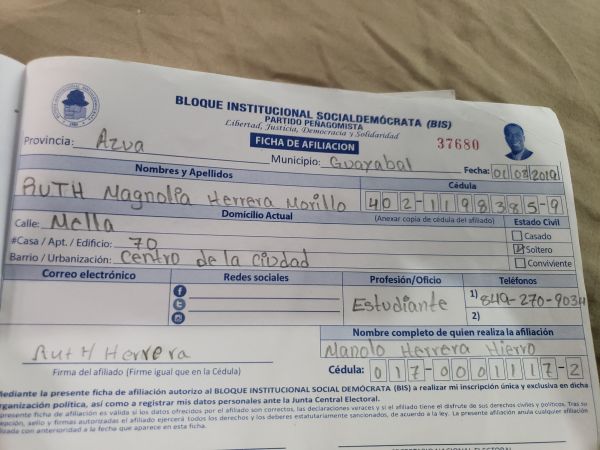 BLOQUE INSTITUCIONAL SOCIALDEMÓCRATA (BIS)
PARTIDO PEÑAGOMISTA
Libertad, Justicia, Democracia y Solidaridad
FICHA DE AFILIACION
37680
Provincia: Azua
Municipio: Guayabal
Fecha: 01 08 2019
Nombres y Apellidos
Cédula
RUTH Magnolia Herrera Morillo
402-1198385-9
Domicilio Actual
(Anexar copia de cédula del afiliado)
Estado Civil
Calle: Mella
Casado
#Casa / Apt. / Edificio: 70
Soltero
Barrio / Urbanización: Centro de la Ciudad
Conviviente
Correo electrónico
Redes sociales
Profesión/Oficio
Teléfonos
Estudiante
1) 849-270-9034
2)
Nombre completo de quien realiza la afiliación
Ruth Herrera
Manolo Herrera Hierro
Firma del afiliado (Firme igual que en la Cédula)
Cédula: 017-0001117-2
Mediante la presente ficha de afiliación autorizo al BLOQUE INSTITUCIONAL SOCIAL DEMÓCRATA (BIS) a realizar mi inscripción única y exclusiva en dicha
organización política, así como a registrar mis datos personales ante la Junta Central Electoral.
presente ficha de afiliación es válida si los datos ofrecidos por el afiliado son correctos, las declaraciones veraces y si el afiliado tiene el disfrute de sus derechos civiles y políticos. Tras su
epción, sello y firmas autorizadas el afiliado ejercerá todos los derechos y los deberes estatutariamente sancionados, de acuerdo a la ley. La presente afiliación anula cualquier afiliación
lizada con anterioridad a la fecha que aparece en esta ficha.